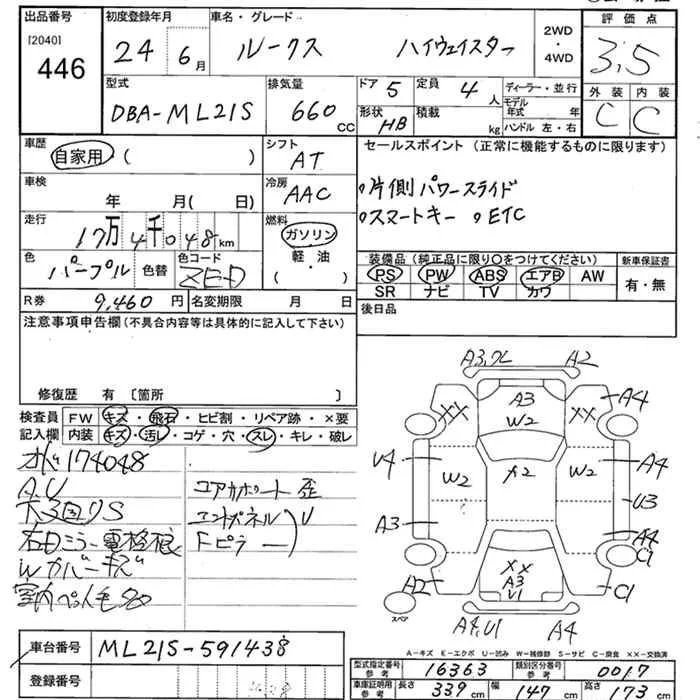 出品番号
[2040]
446
初度登録年月
24 6月
車名・グレード
ルークス ハイウェイスター
2WD
・
4WD
評価点
3,5
型式
DBA-ML21S
排気量
660 CC
ドア 5
定員 4 人
形状 HB
積載 kg
ディーラー・並行
モデル年式 年
ハンドル 左・右
外装 内装
C C
車歴
自家用 ( )
シフト
AT
セールスポイント (正常に機能するものに限ります)
車検
年 月( 日)
冷房
AAC
・片側パワースライド
・スマートキー ・ETC
走行
17万4千048km
燃料
ガソリン
軽・油
( )
色
パープル
色替
色コード
ZED
装備品(純正品に限り○をつけてください)
新車保証書
PS PW ABS エアB AW
SR ナビ TV カワ
有・無
R券 9,460 円
名変期限 月 日
後日品
注意事項申告欄(不具合内容等は具体的に記入して下さい)
修復歴 有 〔箇所 〕
検査員
記入欄
FW キズ・飛石・ヒビ割・リペア跡・×要
内装 キズ・汚レ・コゲ・穴・スレ・キレ・破レ
174048
A.U
下3回りS
Wカバーキズ
コアサポート 歪
エンドパネル U
Fピラー
A3,フL A2
A3
W2
A4
XX XX
U4
W2 A2 W2
A4
U3
A3
A4
C1
XX
A3
U1
A2
C1
スペア
A4,U1 A4
車台番号 ML21S-591438
登録番号
A-キズ E-エクボ U-凹み W-補修跡 S-サビ C-腐食 ××-交換済
型式指定番号
参考
16363
類別区分番号
参考
0017
車庫証明用
参考
長さ 339 cm 幅 147 cm 高さ 173 cm